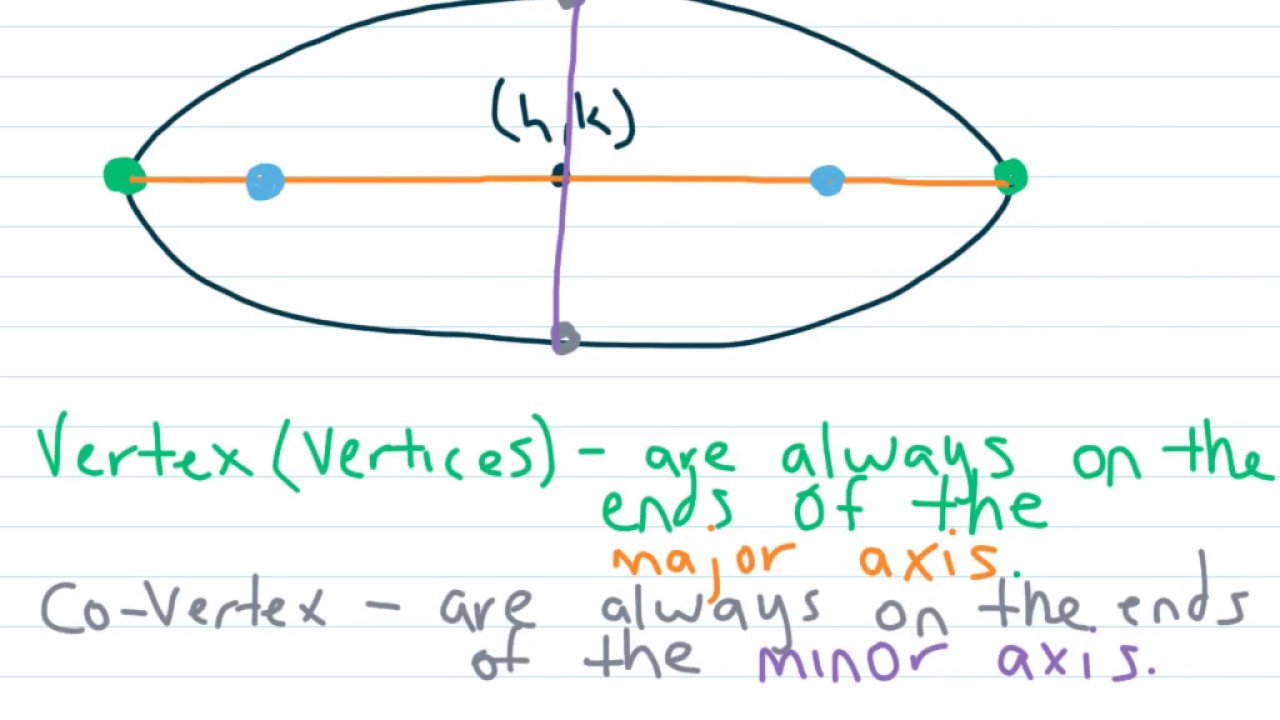 (h,k)
Vertex (Vertices) - are always on the
ends of the
major axis.
Co-Vertex - are always on the ends
of the minor axis.